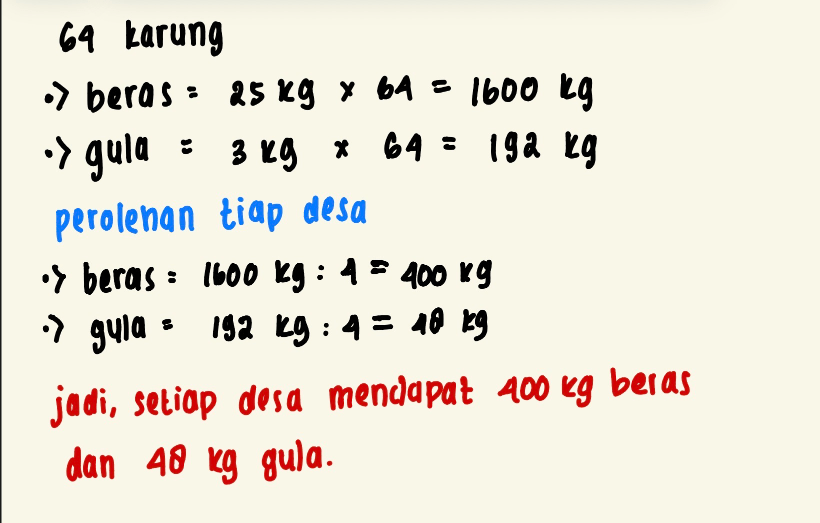 64 karung
•> beras = 25 kg x 64 = 1600 kg
•> gula = 3 kg x 64 = 192 kg
perolehan tiap desa
•> beras = 1600 kg : 4 = 400 kg
•> gula = 192 kg : 4 = 48 kg
jadi, setiap desa mendapat 400 kg beras
dan 48 kg gula.